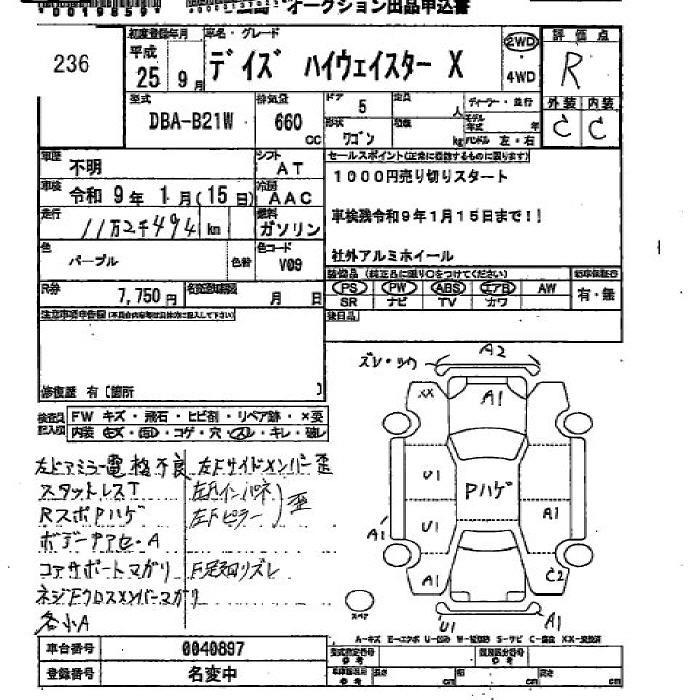 オークション出品申込書
236
初度登録年月
平成
25 9月
車名・グレード
デイズ ハイウェイスター X
2WD
・
4WD
評価点
R
外装 内装
C C
型式
DBA-B21W
排気量
660
CC
ドア
5
定員
人
形状
ワゴン
積載
kg
ディーラー・並行
モデル年式 年
ハンドル 左・右
車歴
不明
シフト
AT
車検
令和 9年 1月(15日)
冷房
AAC
走行
11万2千494 km
燃料
ガソリン
色
パープル
色替
色コード
V09
R券
7,750円
名変登録期限
月 日
セールスポイント(正常に機能するものに限ります)
1000円売り切りスタート
車検残令和9年1月15日まで!!
社外アルミホイール
装備品(純正品に限り○をつけてください)
PS PW ABS エアB AW
SR ナビ TV カワ
有・無
後日品
注意事項申告欄
修復歴 有〔箇所 〕
検査員記入欄
FW キズ・飛石・ヒビ割・リペア跡・×要
内装 キズ・凹・コゲ・穴・スレ・キレ・破レ
左ドアミラー電格不良
スタットレスT
RスポPハゲ
ボデーアセ・A
コアサポートマガリ
ネジFクロスメンバーマガリ
各小A
左Fサイドメンバー歪
左Fインパネ
左Fピラー
歪
F足廻リズレ
ズレ・ソウ
A2
XX
A1
U1
Pハゲ
U1
A1
A1
A1
C2
U1
A1
スペア
A-キズ E-エクボ U-凹み W-補修跡 S-サビ C-腐食 XX-交換済
車台番号
0040897
登録番号
名変中
型式指定番号
参考
類別区分番号
参考
長さ cm
幅 cm
高さ cm